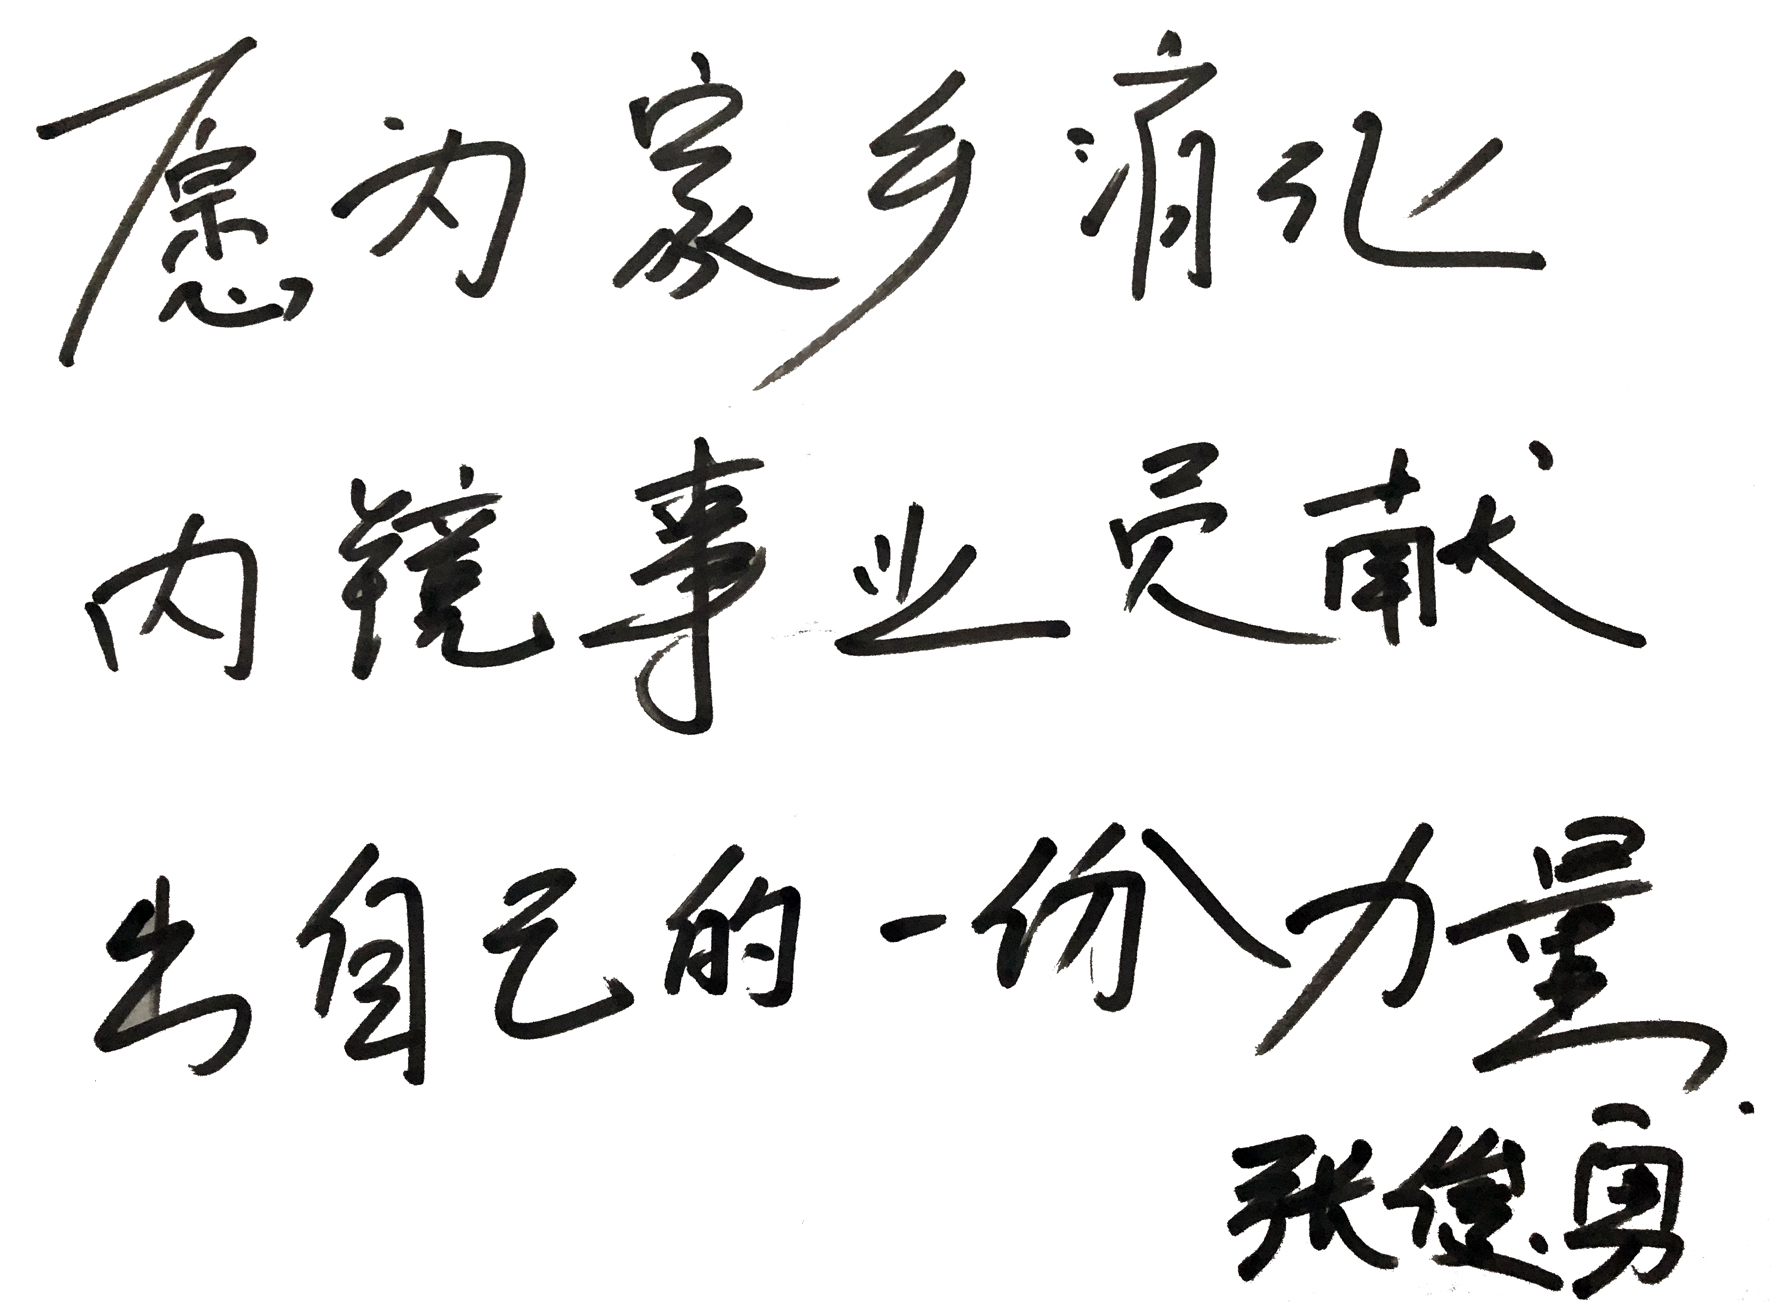 愿为家乡消化
内镜事业贡献
出自己的一份力量.
张俊勇